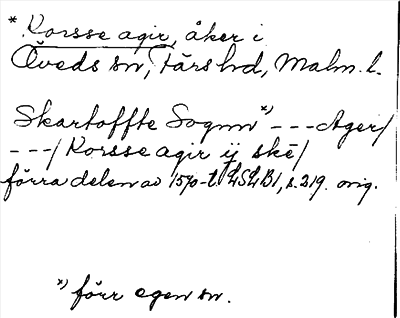 * Korsse agir, åker i
Öveds sn, Färs hd, Malm. l.
Skartoffte Sognn *) --- Ager/
---/ Korsse agir ij skē/
förra delen av 1570-t. LSLB1, s. 219. orig.
*) förr egen sn.